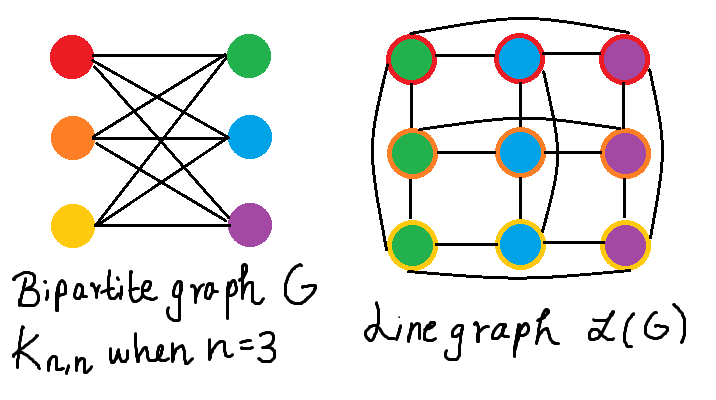 Bipartite graph G
Kn,n when n=3
Line graph L(G)